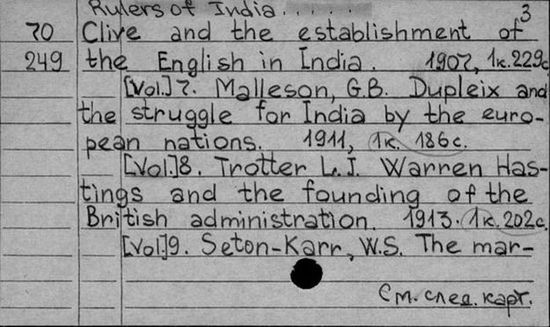 Rulers of India......
3
70 Clive and the establishment of
249 the English in India. 1907, 1к.229с
[Vol.]7. Malleson, G.B. Dupleix and
the struggle for India by the euro-
pean nations. 1911, 1к. 186с.
[Vol.]8. Trotter L.J. Warren Has-
tings and the founding of the
British administration. 1913. 1к. 202с.
[Vol]9. Seton-Karr, W.S. The mar-
См. след. карт.